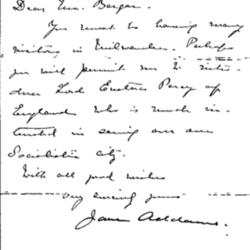 Dear Mr. Berger -
You must be having many
visitors in Milwaukee. Perhaps
you will permit me to intro-
duce Lord Eustace Percy of
England who is much in-
terested in seeing our one
Socialistic city.
With all good wishes
very sincerely yours
Jane Addams.